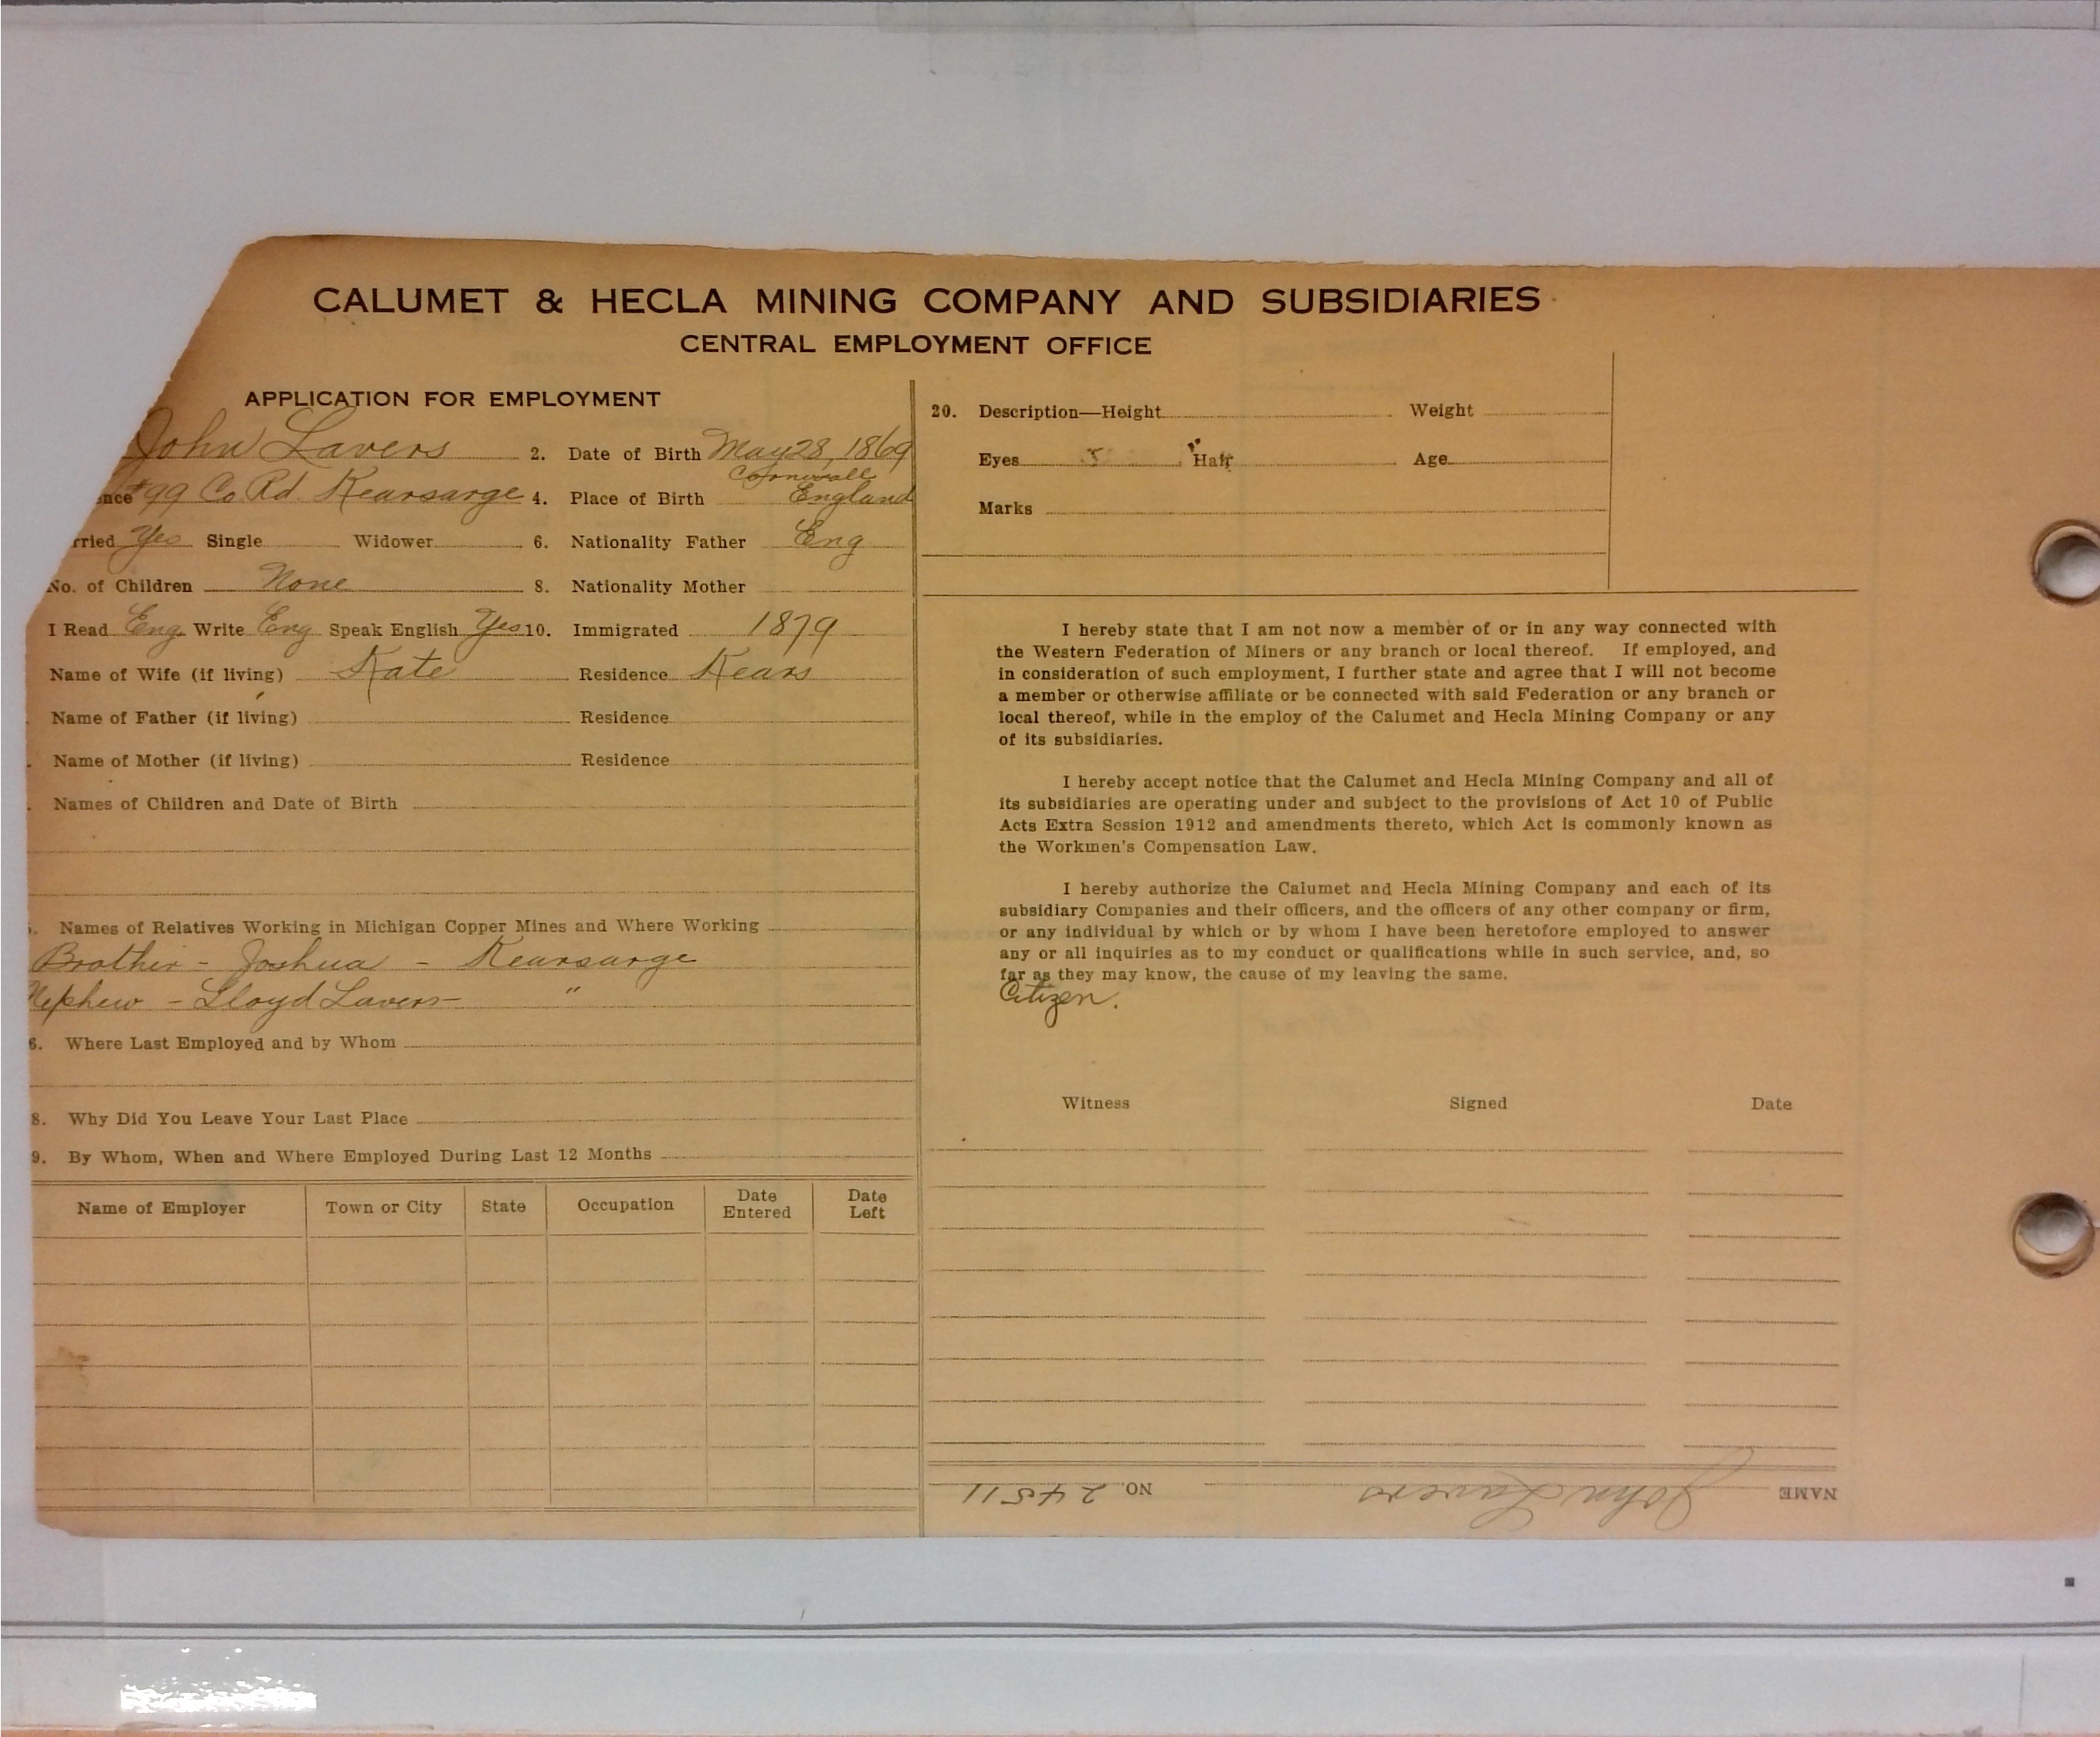 CALUMET & HECLA MINING COMPANY AND SUBSIDIARIES
CENTRAL EMPLOYMENT OFFICE
APPLICATION FOR EMPLOYMENT
John Lavers 2. Date of Birth May 28, 1869
ence #99 Co. Rd. Kearsarge 4. Place of Birth Cornwall England
rried Yes Single Widower 6. Nationality Father Eng
No. of Children None 8. Nationality Mother
I Read Eng. Write Eng Speak English Yes 10. Immigrated 1879
Name of Wife (if living) Kate Residence Kears
Name of Father (if living) Residence
Name of Mother (if living) Residence
Names of Children and Date of Birth
Names of Relatives Working in Michigan Copper Mines and Where Working
Brother - Joshua - Kearsarge
Nephew - Lloyd Lavers - "
6. Where Last Employed and by Whom
8. Why Did You Leave Your Last Place
9. By Whom, When and Where Employed During Last 12 Months
Name of Employer Town or City State Occupation Date Entered Date Left
20. Description—Height Weight
Eyes Hair Age
Marks
I hereby state that I am not now a member of or in any way connected with
the Western Federation of Miners or any branch or local thereof. If employed, and
in consideration of such employment, I further state and agree that I will not become
a member or otherwise affiliate or be connected with said Federation or any branch or
local thereof, while in the employ of the Calumet and Hecla Mining Company or any
of its subsidiaries.
I hereby accept notice that the Calumet and Hecla Mining Company and all of
its subsidiaries are operating under and subject to the provisions of Act 10 of Public
Acts Extra Session 1912 and amendments thereto, which Act is commonly known as
the Workmen's Compensation Law.
I hereby authorize the Calumet and Hecla Mining Company and each of its
subsidiary Companies and their officers, and the officers of any other company or firm,
or any individual by which or by whom I have been heretofore employed to answer
any or all inquiries as to my conduct or qualifications while in such service, and, so
far as they may know, the cause of my leaving the same.
Citizen.
Witness Signed Date
NAME John Lavers NO. 24511